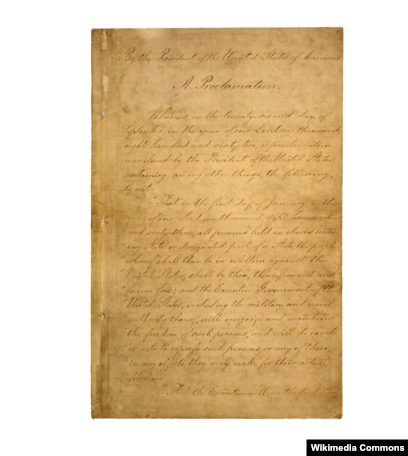 By the President of the United States of America:
A Proclamation.
Whereas, on the twenty-second day of
September, in the year of our Lord one thousand
eight hundred and sixty-two, a proclamation
was issued by the President of the United States,
containing, among other things, the following,
to wit:
"That on the first day of January, in the
year of our Lord one thousand eight hundred
and sixty-three, all persons held as slaves within
any State or designated part of a State, the people
whereof shall then be in rebellion against the
United States, shall be then, thenceforward, and
forever free; and the Executive Government of the
United States, including the military and naval
authority thereof, will recognize and maintain
the freedom of such persons, and will do no act
or acts to repress such persons, or any of them,
in any efforts they may make for their actual
freedom.
"That the Executive will, on the first day
Wikimedia Commons